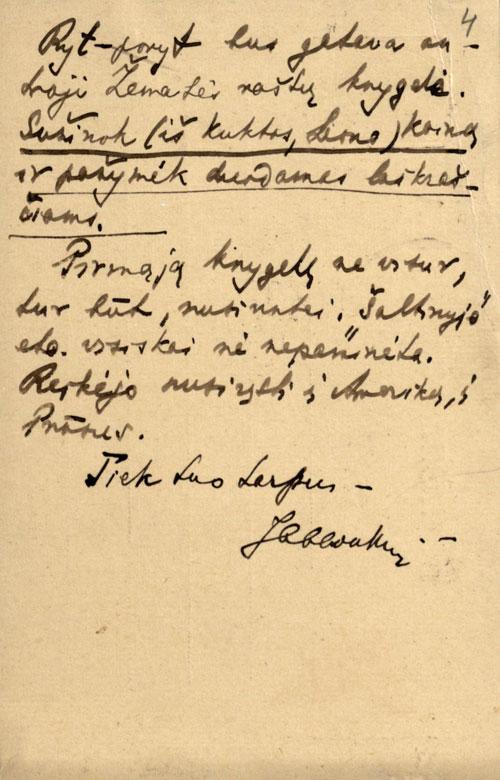 4
Ryt-poryt bus gatava an-
troji Žematės raštų knygelė.
Sužinok (iš Kuktos, Leono) kainą
ir pažymėk duodamas laikraš-
čiams.
Pirmąją knygelę ne visur,
tur būt, nusiuntei. „Šaltinyje“
etc. visiškai nė nepaminėta.
Reikėjo nusiųsti į Ameriką, į
Prūsus.
Tiek tuo tarpu –
Jablonskis –